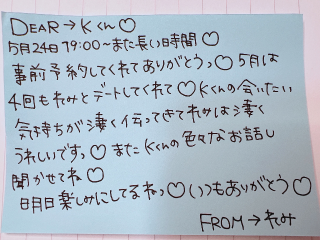 DEAR→Kくん♡
5月24日 19:00〜また長い時間♡
事前予約してくれてありがとうっ♡5月は
4回もれみとデートしてくれて♡Kくんの会いたい
気持ちが凄く伝ってきてれみは凄く
うれしいですっ♡またKくんの色々なお話し
聞かせてね♡
明日楽しみにしてるねっ♡いつもありがとう♡
FROM→れみ